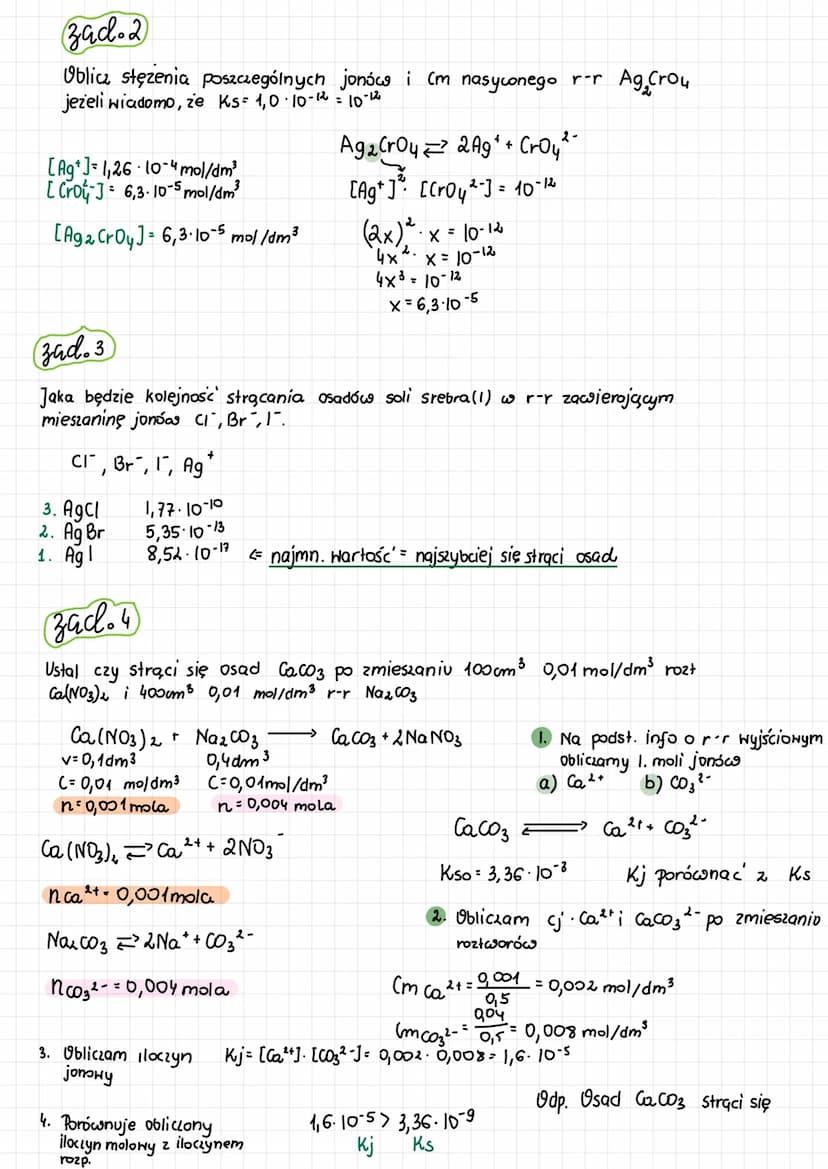 zad.2
Oblicz stężenia poszczególnych jonów i Cm nasyconego r-r Ag₂CrO₄
jeżeli wiadomo, że Ks= 1,0·10⁻¹² = 10⁻¹²
Ag₂CrO₄ ⇄ 2Ag⁺ + CrO₄²⁻
[Ag⁺]= 1,26·10⁻⁴ mol/dm³
[CrO₄²⁻]= 6,3·10⁻⁵ mol/dm³
[Ag⁺]²·[CrO₄²⁻] = 10⁻¹²
[Ag₂CrO₄]= 6,3·10⁻⁵ mol/dm³
(2x)²·x = 10⁻¹²
4x²·x = 10⁻¹²
4x³ = 10⁻¹²
x = 6,3·10⁻⁵
zad.3
Jaka będzie kolejność strącania osadów soli srebra(I) w r-r zawierającym
mieszaninę jonów Cl⁻, Br⁻, I⁻.
Cl⁻, Br⁻, I⁻, Ag⁺
3. AgCl 1,77·10⁻¹⁰
2. AgBr 5,35·10⁻¹³
1. AgI 8,52·10⁻¹⁷ ⇐ najmn. wartość = najszybciej się strąci osad
zad.4
Ustal czy strąci się osad CaCO₃ po zmieszaniu 100cm³ 0,01 mol/dm³ rozt
Ca(NO₃)₂ i 400cm³ 0,01 mol/dm³ r-r Na₂CO₃
Ca(NO₃)₂ + Na₂CO₃ ⟶ CaCO₃ + 2NaNO₃
V=0,1dm³ 0,4dm³
C=0,01 mol dm³ C=0,01mol/dm³
n=0,001mola n=0,004 mola
1. Na podst. info o r-r wyjściowym
obliczamy l. moli jonów
a) Ca²⁺ b) CO₃²⁻
CaCO₃ ⇄ Ca²⁺ + CO₃²⁻
Ca(NO₃)₂ ⇄ Ca²⁺ + 2NO₃⁻
Kso = 3,36·10⁻⁸ Kj porównać z Ks
n Ca²⁺ = 0,001mola
2. Obliczam cj·Ca²⁺ i CaCO₃²⁻ po zmieszaniu
roztworów
Na₂CO₃ ⇄ 2Na⁺ + CO₃²⁻
nCO₃²⁻ = 0,004 mola
Cm Ca²⁺ = 0,001/0,5 = 0,002 mol/dm³
CmCO₃²⁻ = 0,04/0,5 = 0,008 mol/dm³
3. Obliczam iloczyn Kj= [Ca²⁺]·[CO₃²⁻]= 0,002·0,008= 1,6·10⁻⁵
jonowy
Odp. Osad CaCO₃ strąci się
4. Porównuje obliczony 1,6·10⁻⁵ > 3,36·10⁻⁹
iloczyn molowy z iloczynem Kj Ks
rozp.